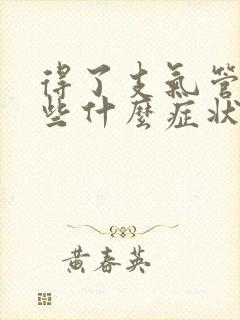 得了支氣管
些什麼症狀
黃春英